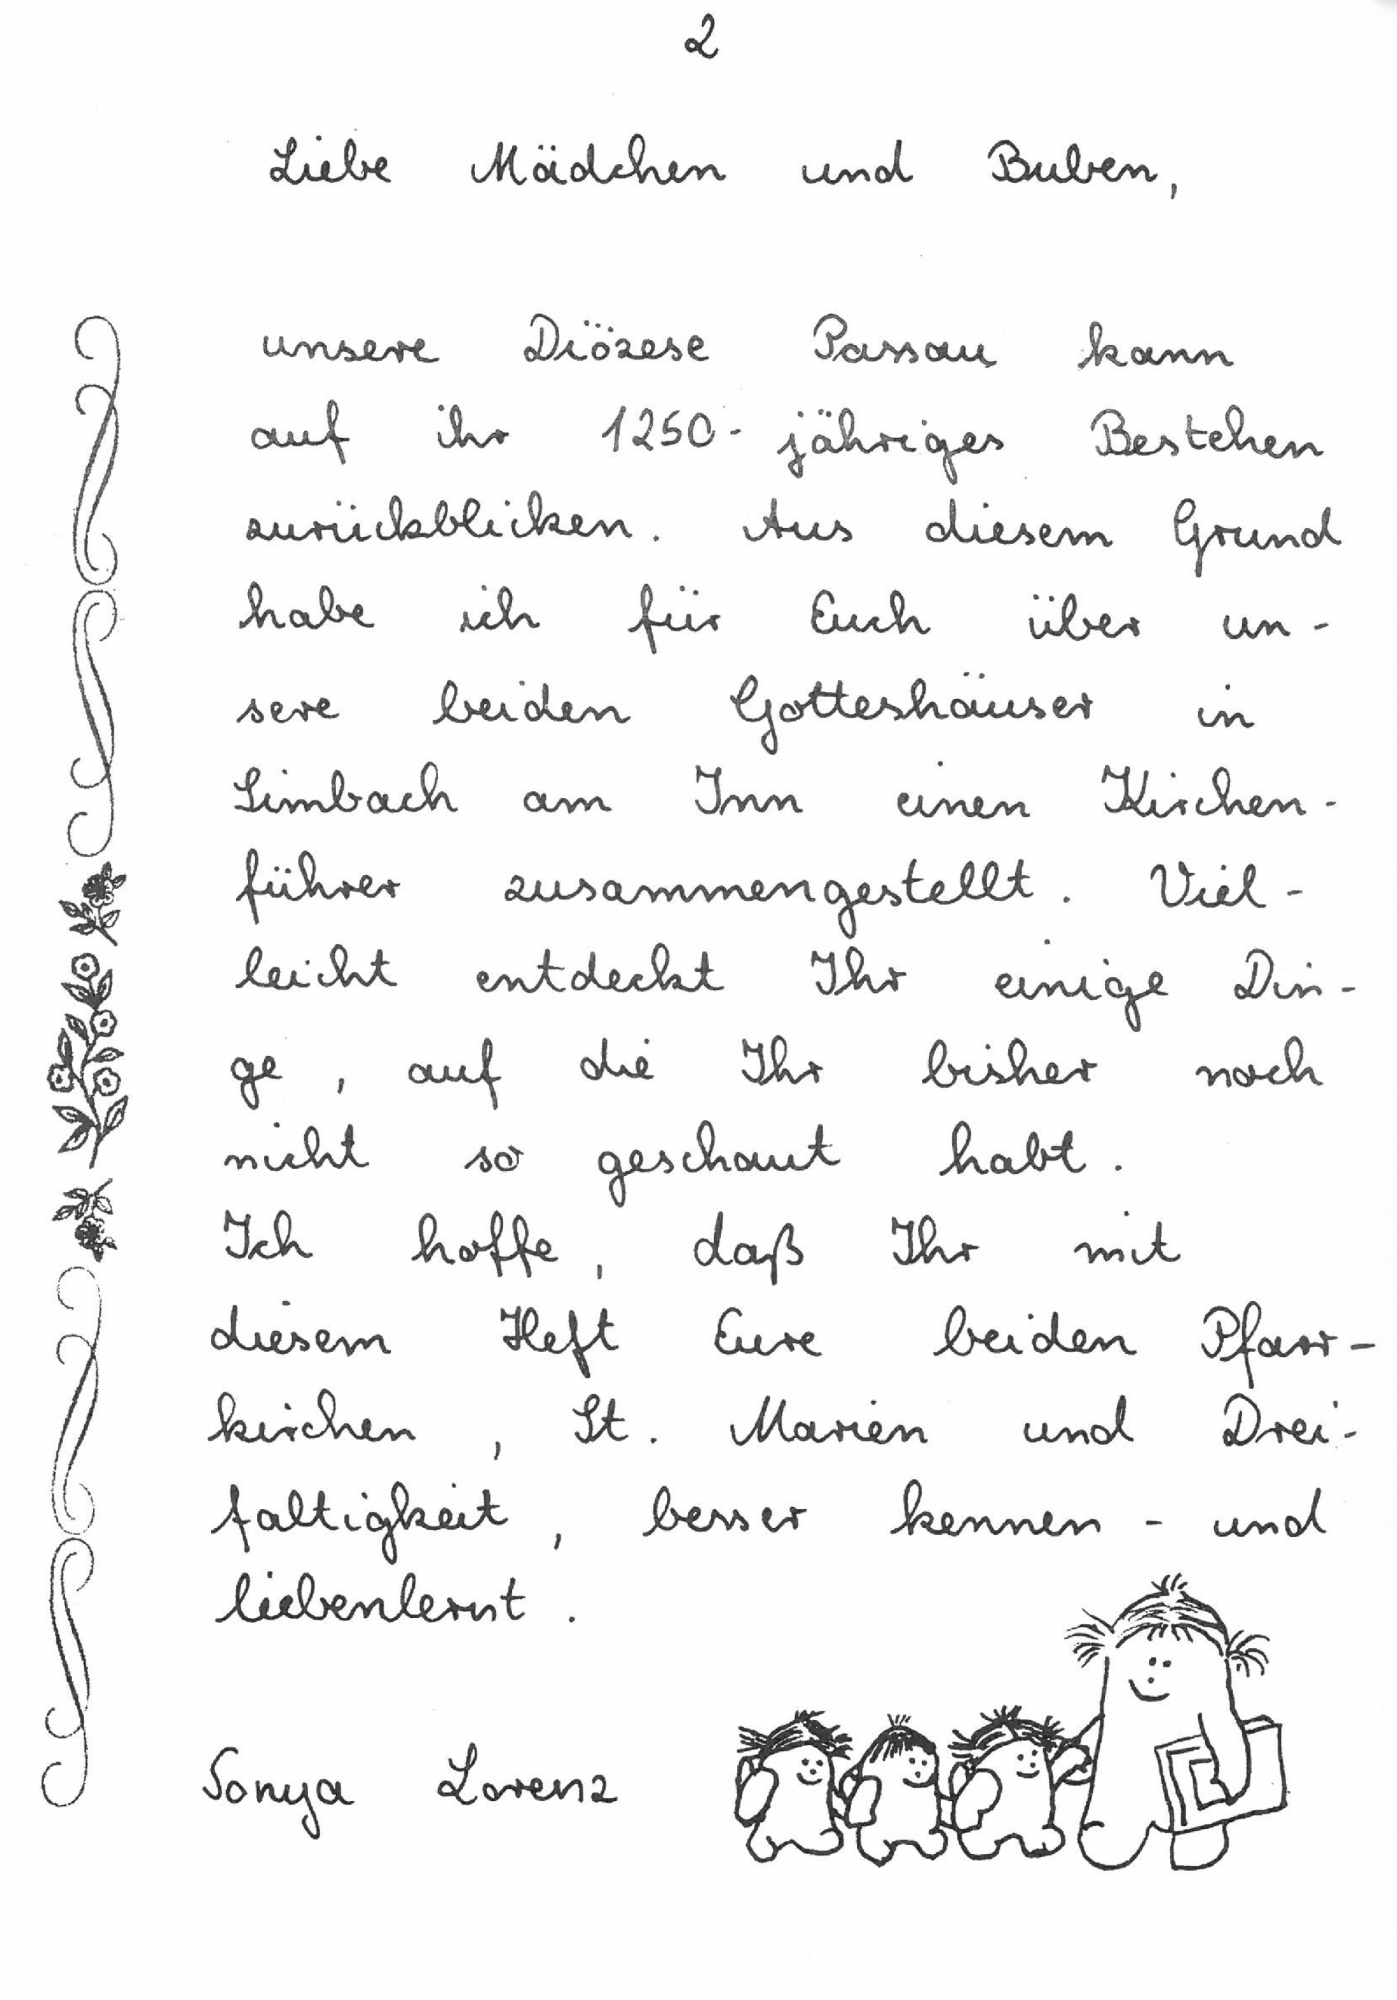 2
Liebe Mädchen und Buben,
unsere Diözese Passau kann
auf ihr 1250-jähriges Bestehen
zurückblicken. Aus diesem Grund
habe ich für Euch über un-
sere beiden Gotteshäuser in
Simbach am Inn einen Kirchen-
führer zusammengestellt. Viel-
leicht entdeckt Ihr einige Din-
ge, auf die Ihr bisher noch
nicht so geschaut habt.
Ich hoffe, daß Ihr mit
diesem Heft Eure beiden Pfarr-
kirchen, St. Marien und Drei-
faltigkeit, besser kennen- und
liebenlernt.
Sonya Lorenz